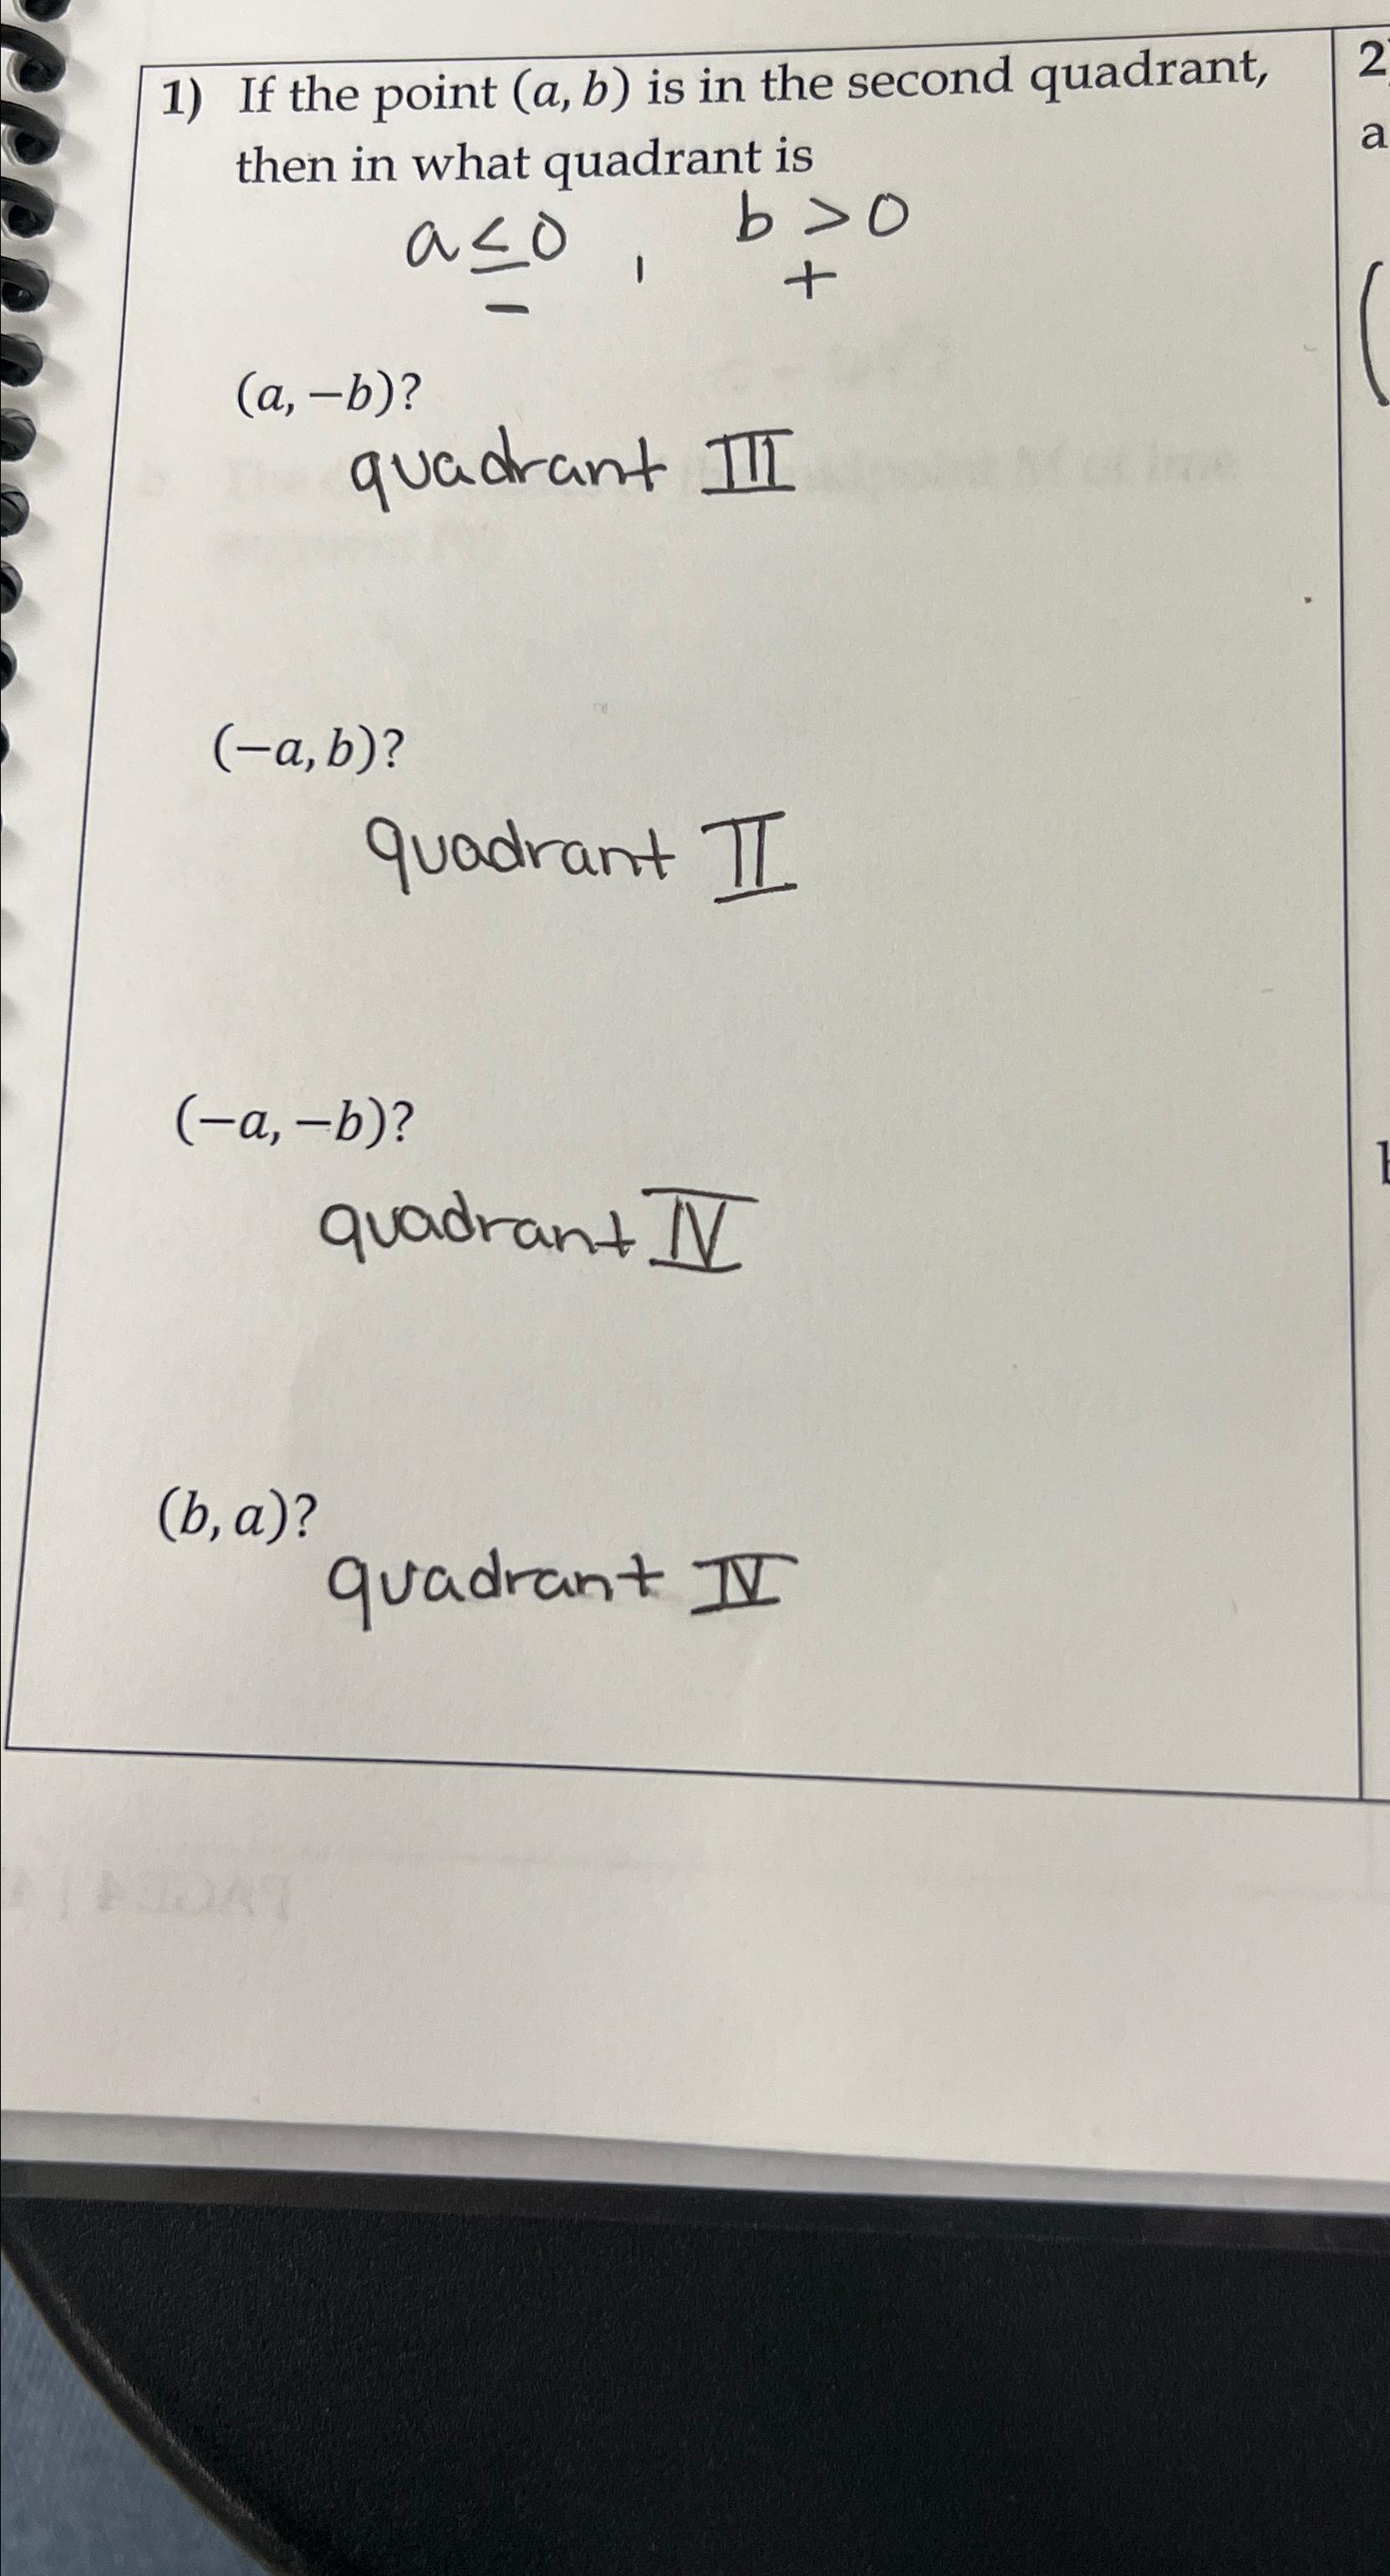 1) If the point (a, b) is in the second quadrant,
then in what quadrant is
a ≤ 0 , b > 0
− +
(a, −b)?
quadrant III
(−a, b)?
quadrant II
(−a, −b)?
quadrant IV
(b, a)?
quadrant IV
2
a
(